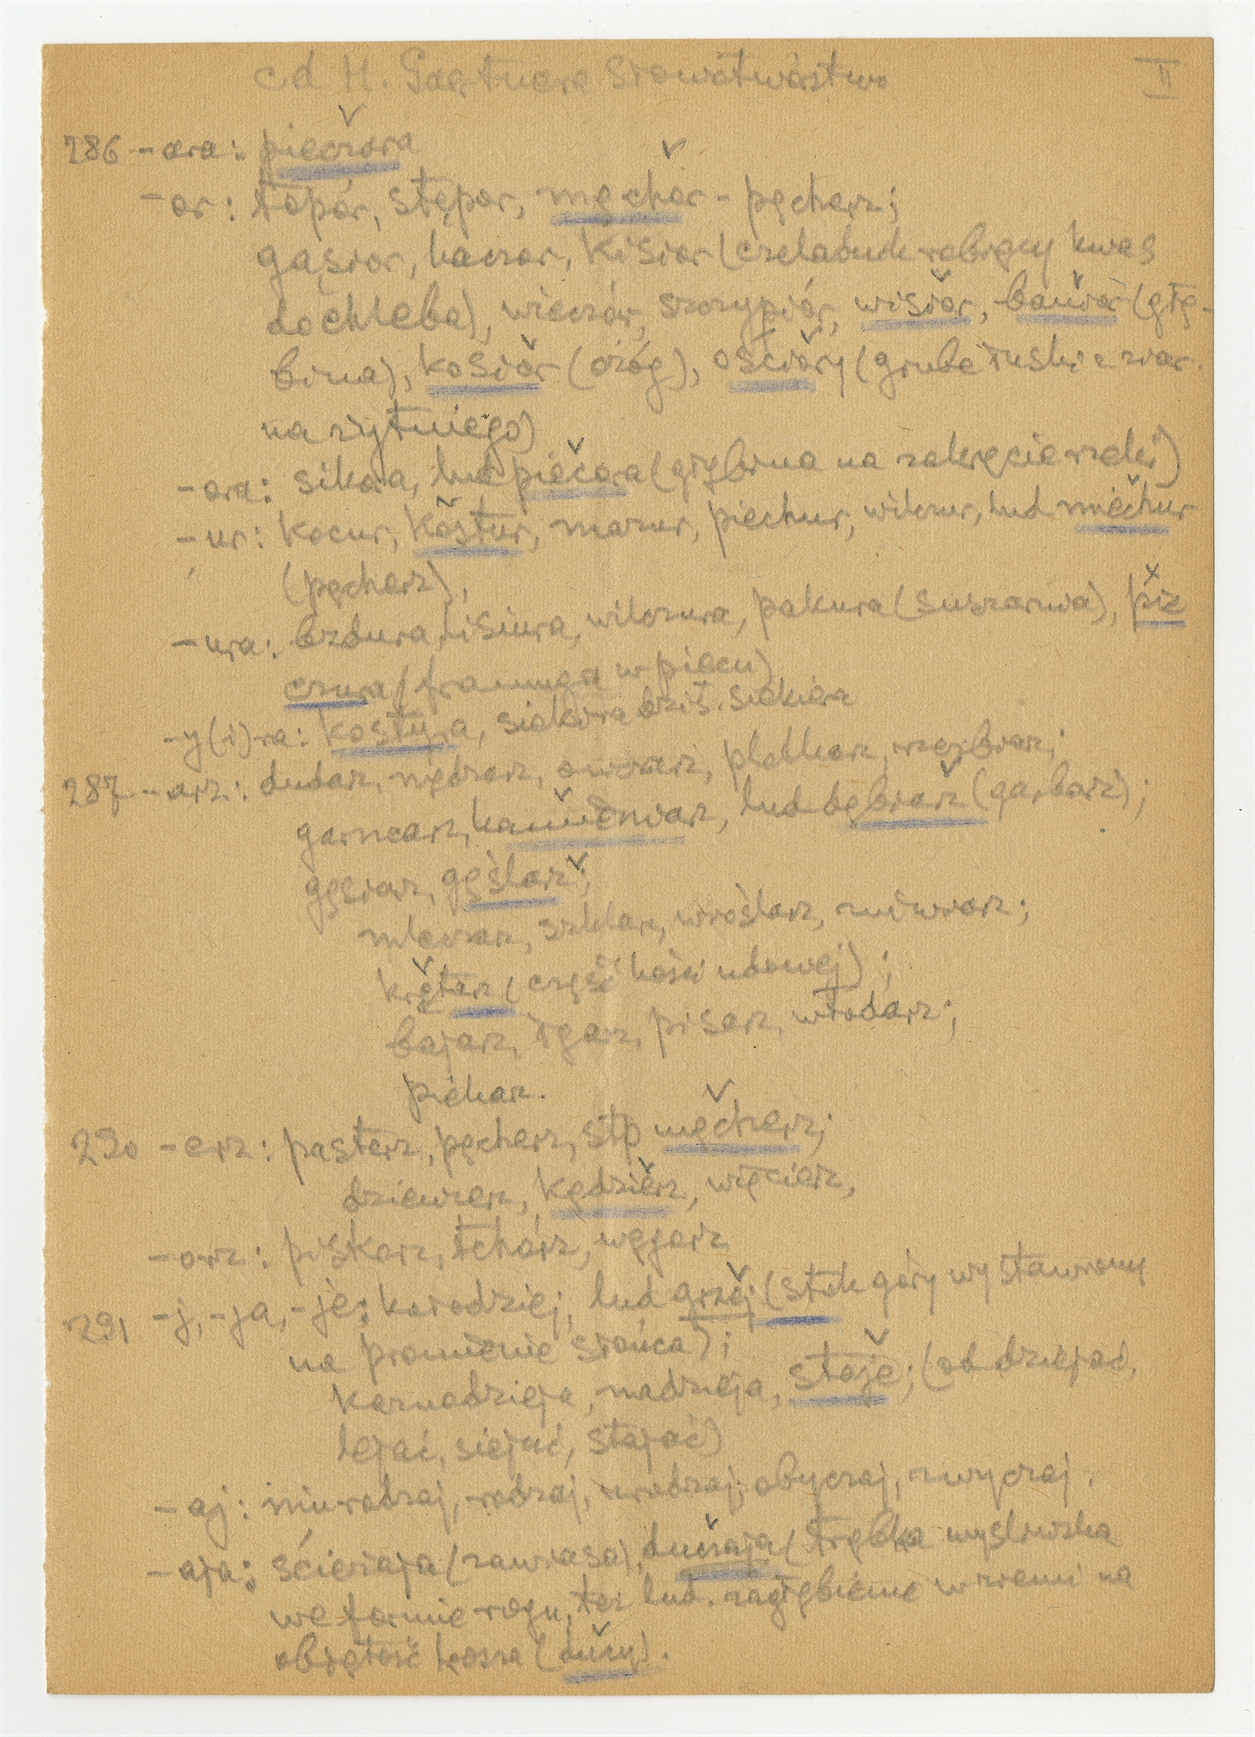 cd H. Gaertnera Słowotwórstwo II
286 -ara: pieczara
-or: topór, stępor, męchor - pęcherz;
gąsior, kaczor, kisior (czeladnik robiący kwas
do chleba), wieczór, szczypiór, wisior, banior (głę-
bina), kosior (ożóg), ościory (grube łuski z ziar-
na żytniego)
-ora: sikora, lud pieczora (głębina na zakręcie rzeki)
-ur: kocur, kostur, mazur, piechur, wilczur, lud miechur
(pęcherz),
-ura: bzdura, lisiura, wilczura, pakura (suszarnia), pie
czura (framuga w piecu)
-y(i)ra: kostyra, siekira dziś. siekiera
287 -arz: dudarz, nędzarz, owczarz, plotkarz, rzeźbiarz;
garncarz, kamieniarz, lud dębiarz (garbarz);
gęsiarz, gęślarz;
mleczarz, szklarz, wróżlarz, żniwiarz;
krętarz (część kości udowej);
bajarz, łgarz, pisarz, włodarz;
piekarz.
290 -erz: pasterz, pęcherz, stp męcherz;
dziewierz, kędzierz, więcierz,
-orz: piskorz, tchórz, węgorz
291 -j, -ja, -je: kołodziej, lud grzej (stok góry wystawiony
na promienie słońca);
kaznodzieja, nadzieja, staje; (od dziejać,
lejać, siejać, stajać)
-aj: rodzaj, urodzaj, obyczaj, zwyczaj.
-aja: ścieżaja (zawiasa), duczaja (trąbka myśliwska
we formie rogu, też lud. zagłębienie w ziemi na
objętość kosza (duczy).